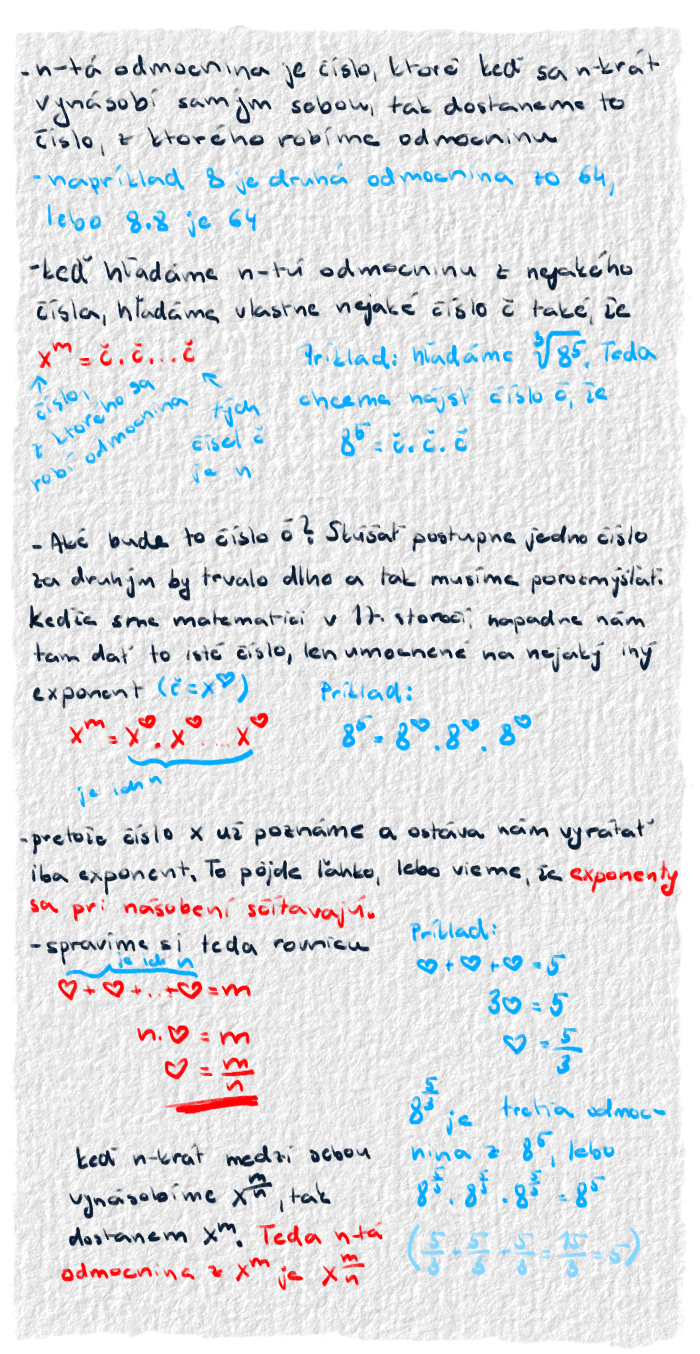 -n-tá odmocnina je číslo, ktoré keď sa n-krát
vynásobí samým sebou, tak dostaneme to
číslo, z ktorého robíme odmocninu
-napríklad 8 je druhá odmocnina zo 64,
lebo 8.8 je 64
-keď hľadáme n-tú odmocninu z nejakého
čísla, hľadáme vlastne nejaké číslo č také, že
x^m = č . č ... č
číslo,
z ktorého sa
robí odmocnina
tých
čísel č
je n
Príklad: hľadáme ∛8^5. Teda
chceme nájsť číslo č, že
8^5 = č . č . č
- Aké bude to číslo č? Skúšať postupne jedno číslo
za druhým by trvalo dlho a tak musíme porozmýšľať.
Keďže sme matematici v 17. storočí, napadne nám
tam dať to isté číslo, len umocnené na nejaký iný
exponent (č=x^♡)
x^m = x^♡ . x^♡ ... x^♡
je ich n
Príklad:
8^5 = 8^♡ . 8^♡ . 8^♡
-pretože číslo x už poznáme a ostáva nám vyrátať
iba exponent. To pôjde ľahko, lebo vieme, že exponenty
sa pri násobení sčítavajú.
-spravíme si teda rovnicu
je ich n
♡ + ♡ + ... + ♡ = m
n . ♡ = m
♡ = m/n
Príklad:
♡ + ♡ + ♡ = 5
3♡ = 5
♡ = 5/3
8^(5/3) je tretia odmoc-
nina z 8^5, lebo
8^(5/3) . 8^(5/3) . 8^(5/3) = 8^5
(5/3 + 5/3 + 5/3 = 15/3 = 5)
keď n-krát medzi sebou
vynásobíme x^(m/n), tak
dostanem x^m. Teda n-tá
odmocnina z x^m je x^(m/n)